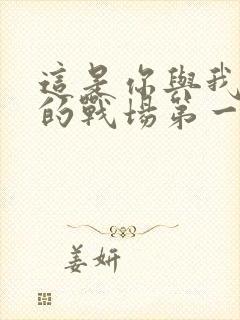 這是你與我
的戰場第一
姜妍